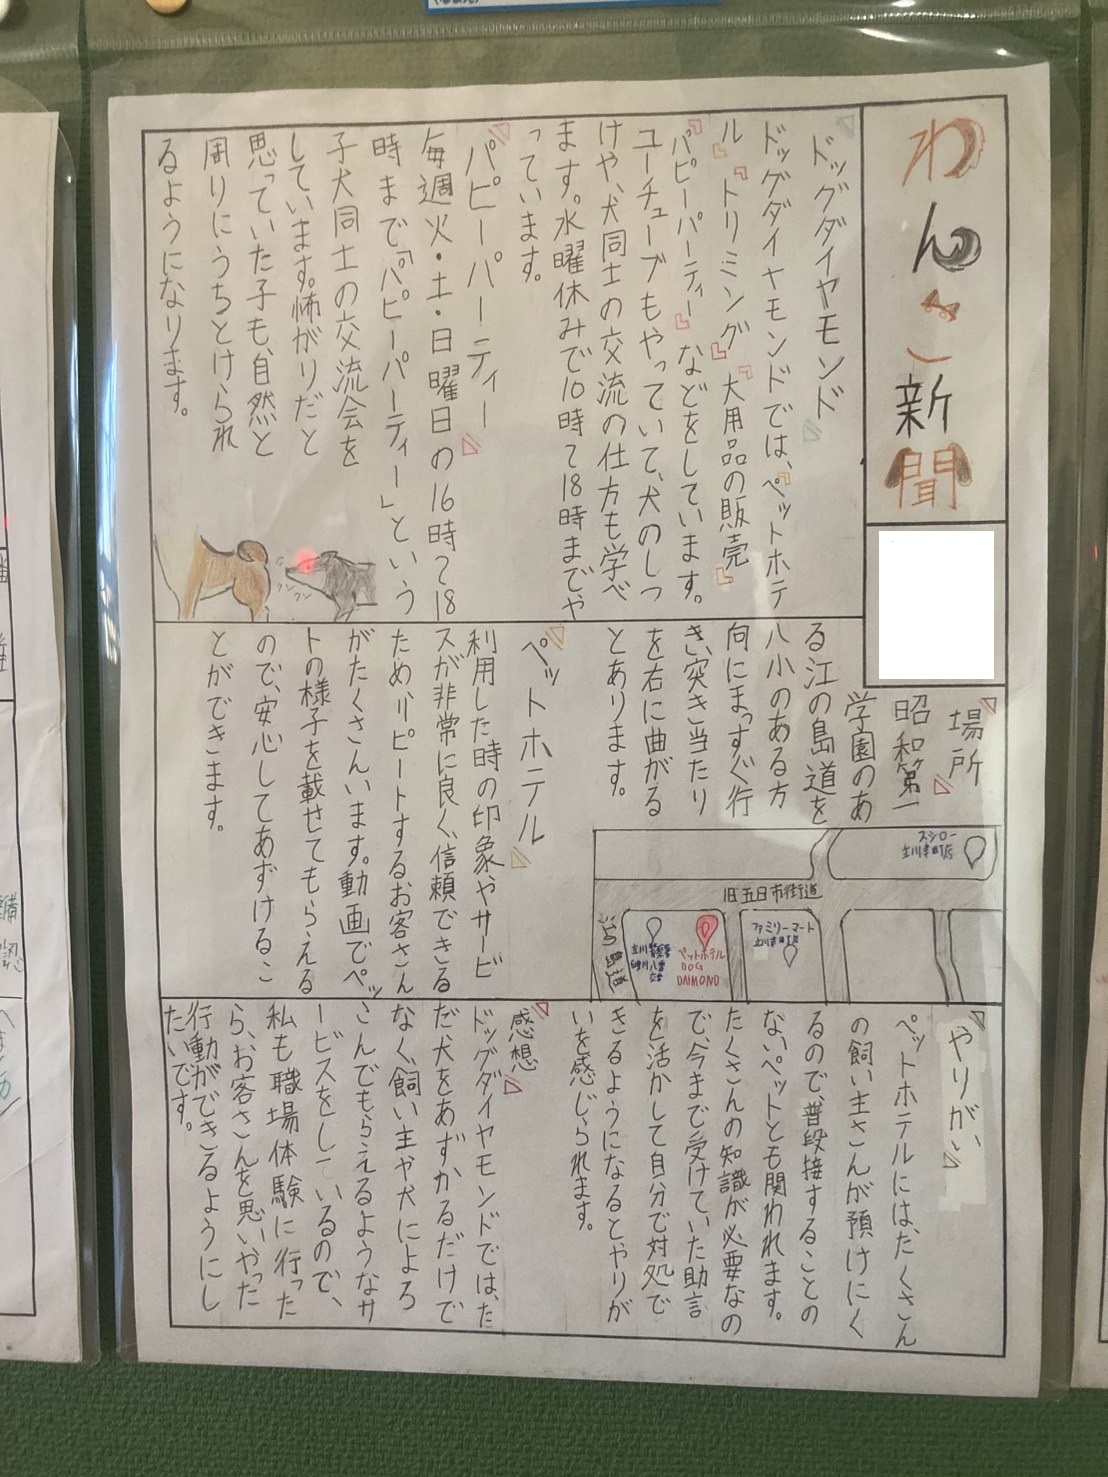 わんこ新聞
ドッグダイヤモンド
ドッグダイヤモンドでは、『ペットホテ
ル』『トリミング』『犬用品の販売』
『パピーパーティー』などをしています。
ユーチューブもやっていて、犬のしつ
けや、犬同士の交流の仕方も学べ
ます。水曜休みで10時~18時までや
っています。
パピーパーティー
毎週火・土・日曜日の16時~18
時まで「パピーパーティー」という
子犬同士の交流会を
しています。怖がりだと
思っていた子も、自然と
周りにうちとけられ
るようになります。
クンクン
場所
昭和第一
学園のあ
る江の島道を
八小のある方
向にまっすぐ行
き、突き当たり
を右に曲がる
とあります。
スシロー
立川幸町店
旧五日市街道
ファミリーマート
立川幸町店
ペットホテル
DOG
DAIMOND
立川警察署
砂川八番
交番
ペットホテル
利用した時の印象やサービ
スが非常に良く、信頼できる
ため、リピートするお客さん
がたくさんいます。動画でペッ
トの様子を載せてもらえる
ので、安心してあずけるこ
とができます。
やりがい
ペットホテルには、たくさん
の飼い主さんが預けにく
るので、普段接することの
ないペットとも関われます。
たくさんの知識が必要なの
で、今まで受けていた助言
を活かして自分で対処で
きるようになるとやりが
いを感じられます。
感想
ドッグダイヤモンドでは、た
だ犬をあずかるだけで
なく、飼い主や犬によろ
こんでもらえるようなサ
ービスをしているので、
私も職場体験に行った
ら、お客さんを思いやった
行動ができるようにし
たいです。